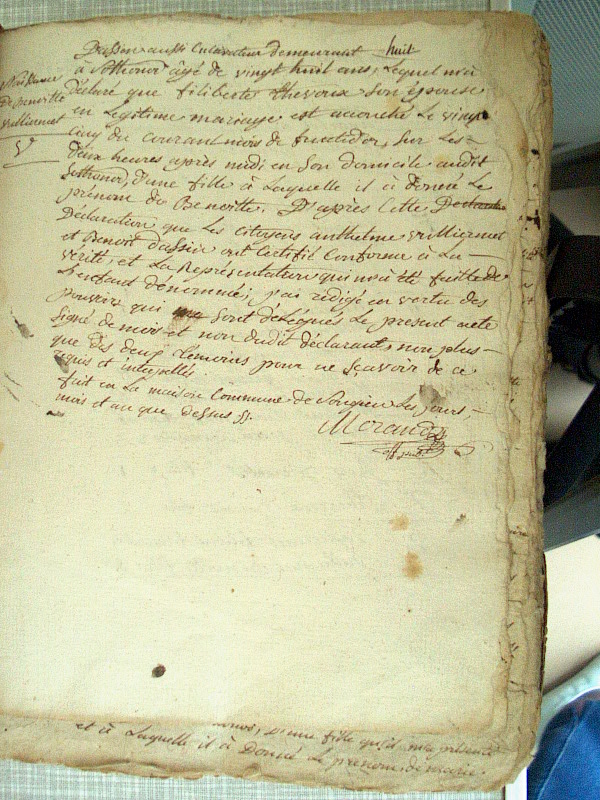 Dassin aussi Cultivateur demeurant huit
à Sothonod âgé de vingt huit ans, Lequel m'a
déclaré que filiberte thevoux Son épouse
en Legitime mariage est accouché Le vingt
cinq du courant mois de fructidor, Sur Les-
deux heures après midi en Son domicile audit
Sothonod, d'une fille à Laquelle il à donné Le
prénom de Benoitte. D'après cette
Déclaration que Les citoyens anthelme vulliermet
et Benoit Dassin ont Certifié Conforme à La-
vérité, et La Représentation qui m'a été faitte de
L'enfant dénommé; j'ai rédigé en vertu des
pouvoirs qui me Sont délégués Le present acte
Signé de moi et non dudit déclarant, non plus-
que des deux témoins pour ne Sçavoir de ce
requis et interpellés
fait en La maison Commune de Songieu Les jours,
mois et an que dessus
Morand
off. publ.
Naissance
De Benoitte
vulliermet
5e
d'une fille qu'il m'a présenté
et à Laquelle il à Donné Le prénom de marie.